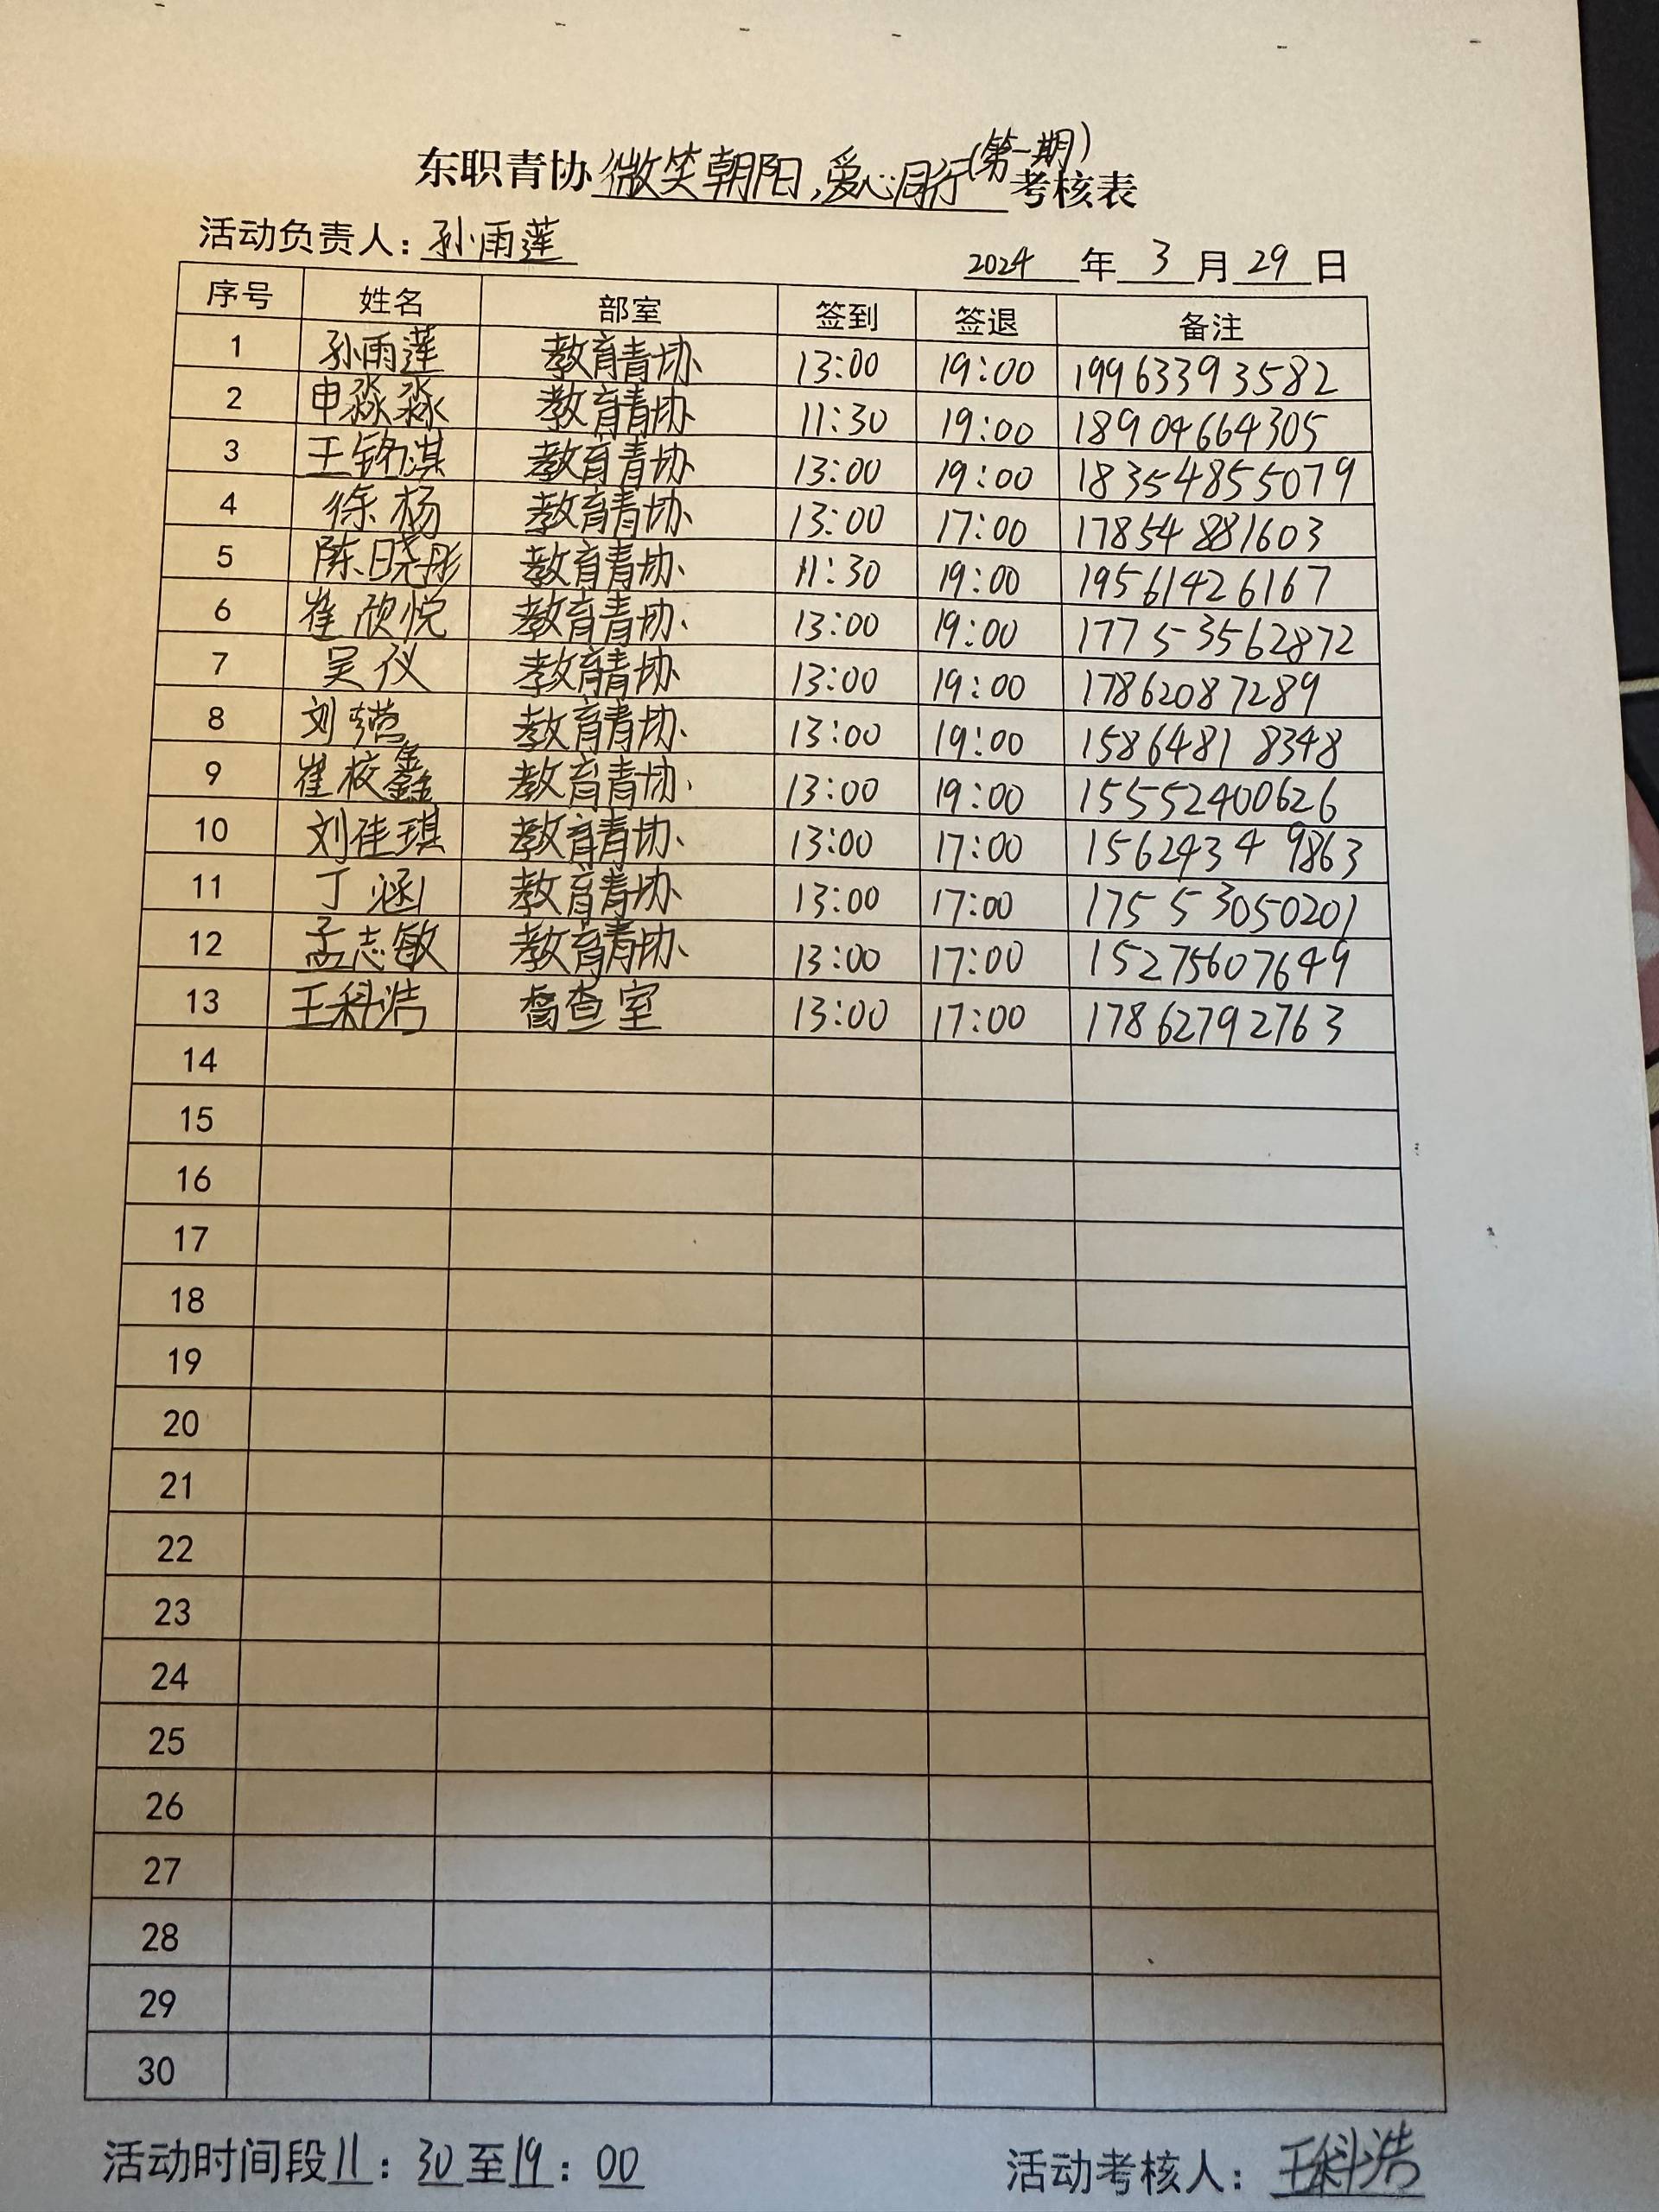 东职青协微笑朝阳,爱心同行(第一期)考核表
活动负责人:孙雨莲 2024年3月29日
序号 姓名 部室 签到 签退 备注
1 孙雨莲 教育青协 13:00 19:00 19963393582
2 申淼淼 教育青协 11:30 19:00 18904664305
3 王铭淇 教育青协 13:00 19:00 18354855079
4 徐杨 教育青协 13:00 17:00 17854881603
5 陈晓彤 教育青协 11:30 19:00 19561426167
6 崔欣悦 教育青协 13:00 19:00 17753562872
7 吴仪 教育青协 13:00 19:00 17862087289
8 刘 教育青协 13:00 19:00 15864818348
9 崔校鑫 教育青协 13:00 19:00 15552400626
10 刘佳琪 教育青协 13:00 17:00 15624349863
11 丁涵 教育青协 13:00 17:00 17553050201
12 孟志敏 教育青协 13:00 17:00 15275607649
13 王科浩 督查室 13:00 17:00 17862792763
14
15
16
17
18
19
20
21
22
23
24
25
26
27
28
29
30
活动时间段11:30至19:00 活动考核人:王科浩